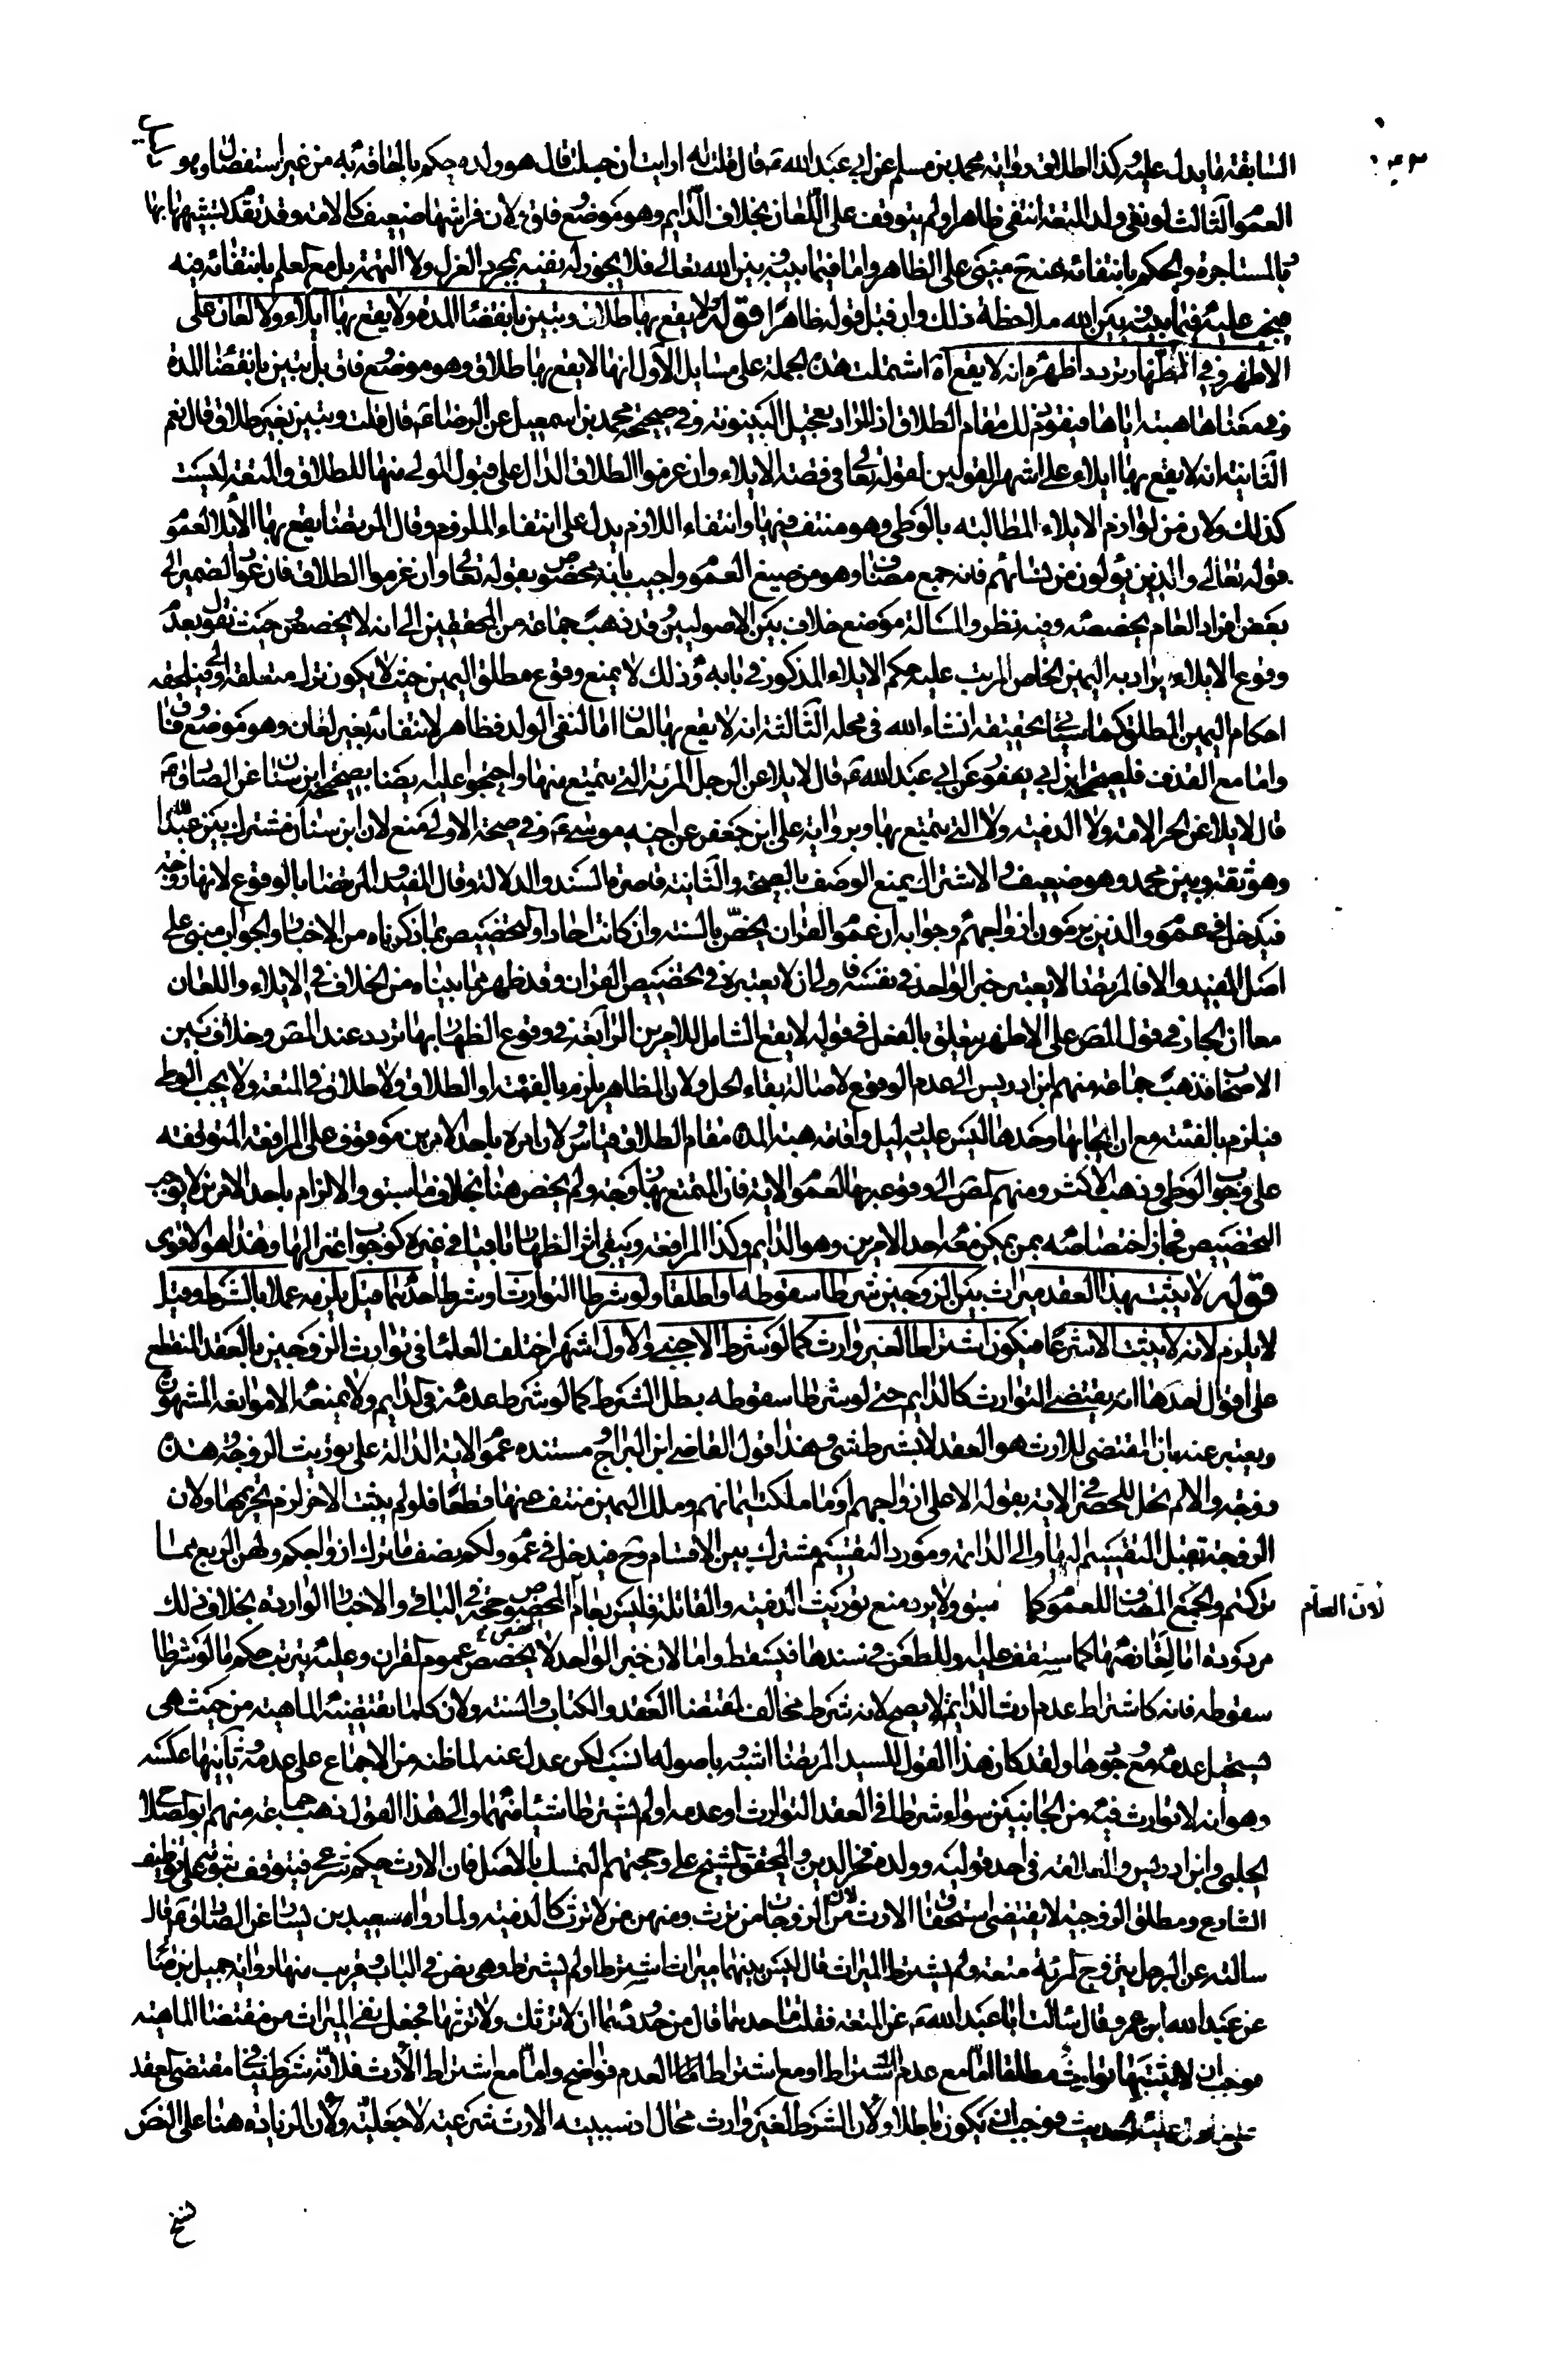 السابقة مما يدل عليه كذا اطلاق رواية محمد بن مسلم عن ابي عبد الله ع قال قلت له ارايت ان حبلت قال هو ولده حكم بالحاقه به من غير استفصال وهو
العموم الثالث لو نفى ولد المتعة انتفى ظاهرا ولم يتوقف على اللعان بخلاف الدايم وهو موضع فاق لان فراشها ضعيف كالامة وقد تقدم تشبيهها بها
وبالمستاجرة والحكم بانتفائه عنه ح مبنى على الظاهر واما فيما بينه وبين الله تعالى فلا يجوز له نفيه بمجرد العزل ولا التهمة بل مع العلم بانتفائه فيه
فيجب عليه فيما بينه وبين الله ملاحظة ذلك وان قبل قوله ظاهرا قوله لا يقع بها طلاق وتبين بانقضاء المدة ولا يقع بها ايلاء ولا لعان على
الاظهر وفي الظهار تردد اظهره انه لا يقع آه اشتملت هذه الجملة على مسايل الاول انها لا يقع بها طلاق وهو موضع فاق بل تبين بانقضاء المدة
وفي معناها هبته اياها فيقوم ذلك مقام الطلاق اذ المراد تعجيل البينونة وفي صحيحة محمد بن اسمعيل عن الرضا ع قال قلت وتبين بغير طلاق قال نعم
الثانية انه لا يقع بها ايلاء على اشهر القولين لقوله تعالى في قصة الايلاء وان عزموا الطلاق الدال على قبول المولى منها للطلاق والمتعة ليست
كذلك ولان من لوازم الايلاء المطالبة بالوطي وهو منتف فيها وانتفاء اللازم يدل على انتفاء الملزوم وقال المرتضى يقع بها الايلاء لعموم
قوله تعالى والذين يولون من نسائهم فانه جمع مضاف وهو من صيغ العموم واجيب بانه مخصوص بقوله تعالى وان عزموا الطلاق فان عود الضمير الى
بعض افراد العام يخصصه وفيه نظر والمسالة موضع خلاف بين الاصوليين وقد ذهب جماعة من المحققين الى انه لا يخصص وحيث نقول بعدم
وقوع الايلاء يراد به اليمين الخاص المرتب عليه حكم الايلاء المذكور في بابه وذلك لا يمنع وقوع مطلق اليمين حيث لا يكون ترك متعلقه ارجح فيلحقه
احكام اليمين المطلق كما سياتي تحقيقه انشاء الله في محله الثالثة انه لا يقع بها لعان اما لنفى الولد فظاهر لانتفائه بغير لعان وهو موضع وفاق
واما مع القذف فلصحيحة ابن ابي يعفور عن ابي عبد الله ع قال لا يلاعن الرجل المرئة التي يتمتع منها واحتجوا عليه يضا بصحيحة ابن سنان عن الصادق ع
قال لا يلاعن الحر الامة ولا الذمية ولا التي يتمتع بها وبرواية علي ابن جعفر عن اخيه موسى ع وفي صحة الاولى منع لان ابن سنان مشترك بين عبد الله
وهو ثقة وبين محمد وهو ضعيف والاشتراك يمنع الوصف بالصحة والثانية قاصرة السند والدلالة وقال المفيد والمرتضى بالوقوع لانها زوجة
فيدخل في عموم والذين يرمون ازواجهم وجوابه ان عموم القران يخص بالسنة وان كانت احادا والتخصيص بما ذكرناه من الاخبار والجواب مبني على
اصل المفيد والا فالمرتضى لا يعتبر خبر الواحد في نفسه فاولى ان لا يعتبره في تخصيص القران وقد ظهر بما بيناه من الخلاف في الايلاء واللعان
معا ان الجار في قول المص على الاظهر يتعلق بالفعل في قوله لا يقع الشامل للامرين الرابعة في وقوع الظهار بها تردد عند المص وخلاف بين
الاصحاب فذهب جماعة منهم ابن ادريس الى عدم الوقوع لاصالة بقاء الحل ولان المظاهر يلزم بالفئة او الطلاق ولا طلاق في المتعة ولا يجب الوطي
فيلزم بالفئة مع ان ايجابها وحدها ليس عليه دليل واقامة هبة المدة مقام الطلاق قياس لان امره باحد الامرين موقوف على المرافعة المتوقفة
على وجوب الوطي وذهب الاكثر ومنهم المص الى وقوعه بها لعموم الاية فان المتمتع بها زوجة ولم يخص هنا بخلاف ما سبق والالزام باحد الامرين لا يوجب
التخصيص فجاز اختصاصه بمن يمكن معه احد الامرين وهو الدايم وكذا المرافعة ويبقى اثر الظهار باقيا في غيره كوجوب اعتزالها وهذا هو الاقوى
قوله لا يثبت بهذا العقد ميراث بين الزوجين شرطا سقوطه او اطلقا ولو شرطا التوارث او شرط احدهما قيل يلزم عملا بالشرط وقيل
لا يلزم لانه لا يثبت الا شرعا فيكون اشتراطا لغير وارث كما لو شرط الاجنبي والاول اشهر اختلف العلماء في توارث الزوجين بالعقد المنقطع
على اقوال احدها انه يقتضي التوارث كالدايم حتى لو شرطا سقوطه بطل الشرط كما لو شرط عدمه في الدايم ولا يمنعه الا موانعه المشهورة
ويعتبر عنه بان المقتضى للارث هو العقد لا بشرط شيء وهذا قول القاضي ابن البراج ومستنده عموم الاية الدالة على توريث الزوجة وهذه
زوجة والا لم تحل للحصر في الاية بقوله الا على ازواجهم او ما ملكت ايمانهم وملك اليمين منتف عنها قطعا فلو لم يثبت الاخر لزم تحريمها ولان
الزوجة تقبل التقسيم اليها والى الدائمة ومورد التقسيم مشترك بين الاقسام وح فيدخل في عموم ولكم نصف ما ترك ازواجكم ولهن الربع مما
تركتم والجمع المضاف للعموم كما سبق ولا يرد منع توريث الذمية والقاتلة فليس بعام لان العام المخصوص حجة في الباقي والاخبار الواردة بخلاف ذلك
مردودة اما لتعارضها كما ستقف عليه وللطعن في سندها فيسقط واما لان خبر الواحد لا يخصص عموم القران وعليه يترتب حكم ما لو شرطا
سقوطه فانه كاشتراط عدم ارث الدايم لا يصح لانه شرط مخالف لمقتضى العقد والكتاب والسنة ولان كلما تقتضيه الماهية من حيث هي
يستحيل عدمه مع وجودها ولقد كان هذا القول للسيد المرتضى اشبه باصوله انسب لكن عدل عنه لما ظنه من الاجماع على عدمه وثانيها عكسه
وهو انه لا توارث فيه من الجانبين سواء شرطا في العقد التوارث او عدمه او لم يشترطا شيئا منهما والى هذا القول ذهب جماعة منهم ابو الصلاح
الحلبي وابن ادريس والعلامة في احد قوليه وولده فخر الدين والمحقق الشيخ علي وحجتهم التمسك بالاصل فان الارث حكم شرعي فيتوقف ثبوته على توظيف
الشارع ومطلق الزوجية لا يقتضي استحقاق الارث لان من الزوجات من ترث ومنهن من لا ترث كالذمية ولما رواه سعيد بن يسار عن الصادق ع قال
سالته عن الرجل يتزوج المرئة متعة ولم يشترط الميراث قال ليس بينهما ميراث اشترطا ولم يشترط وهي نص في الباب وقريب منها رواية جميل بن صالح
عن عبد الله ابن عمرو قال سالت ابا عبد الله ع عن المتعة فقلت ما حدها قال من حدودها ان لا ترثك ولا ترثها فجعل نفي الميراث من مقتضى الماهية
فوجب ان لا يثبت بها توارث مطلقا اما مع عدم الاشتراط او مع اشتراط العدم فواضح واما مع اشتراط الارث فلانه شرط ينافي مقتضى العقد
على ما دل عليه الحديث فوجب ان يكون باطلا ولان الشرط لغير وارث محال اذ سببية الارث شرعية لا جعلية ولان الزيادة هنا على النص
لان العام
نسخ